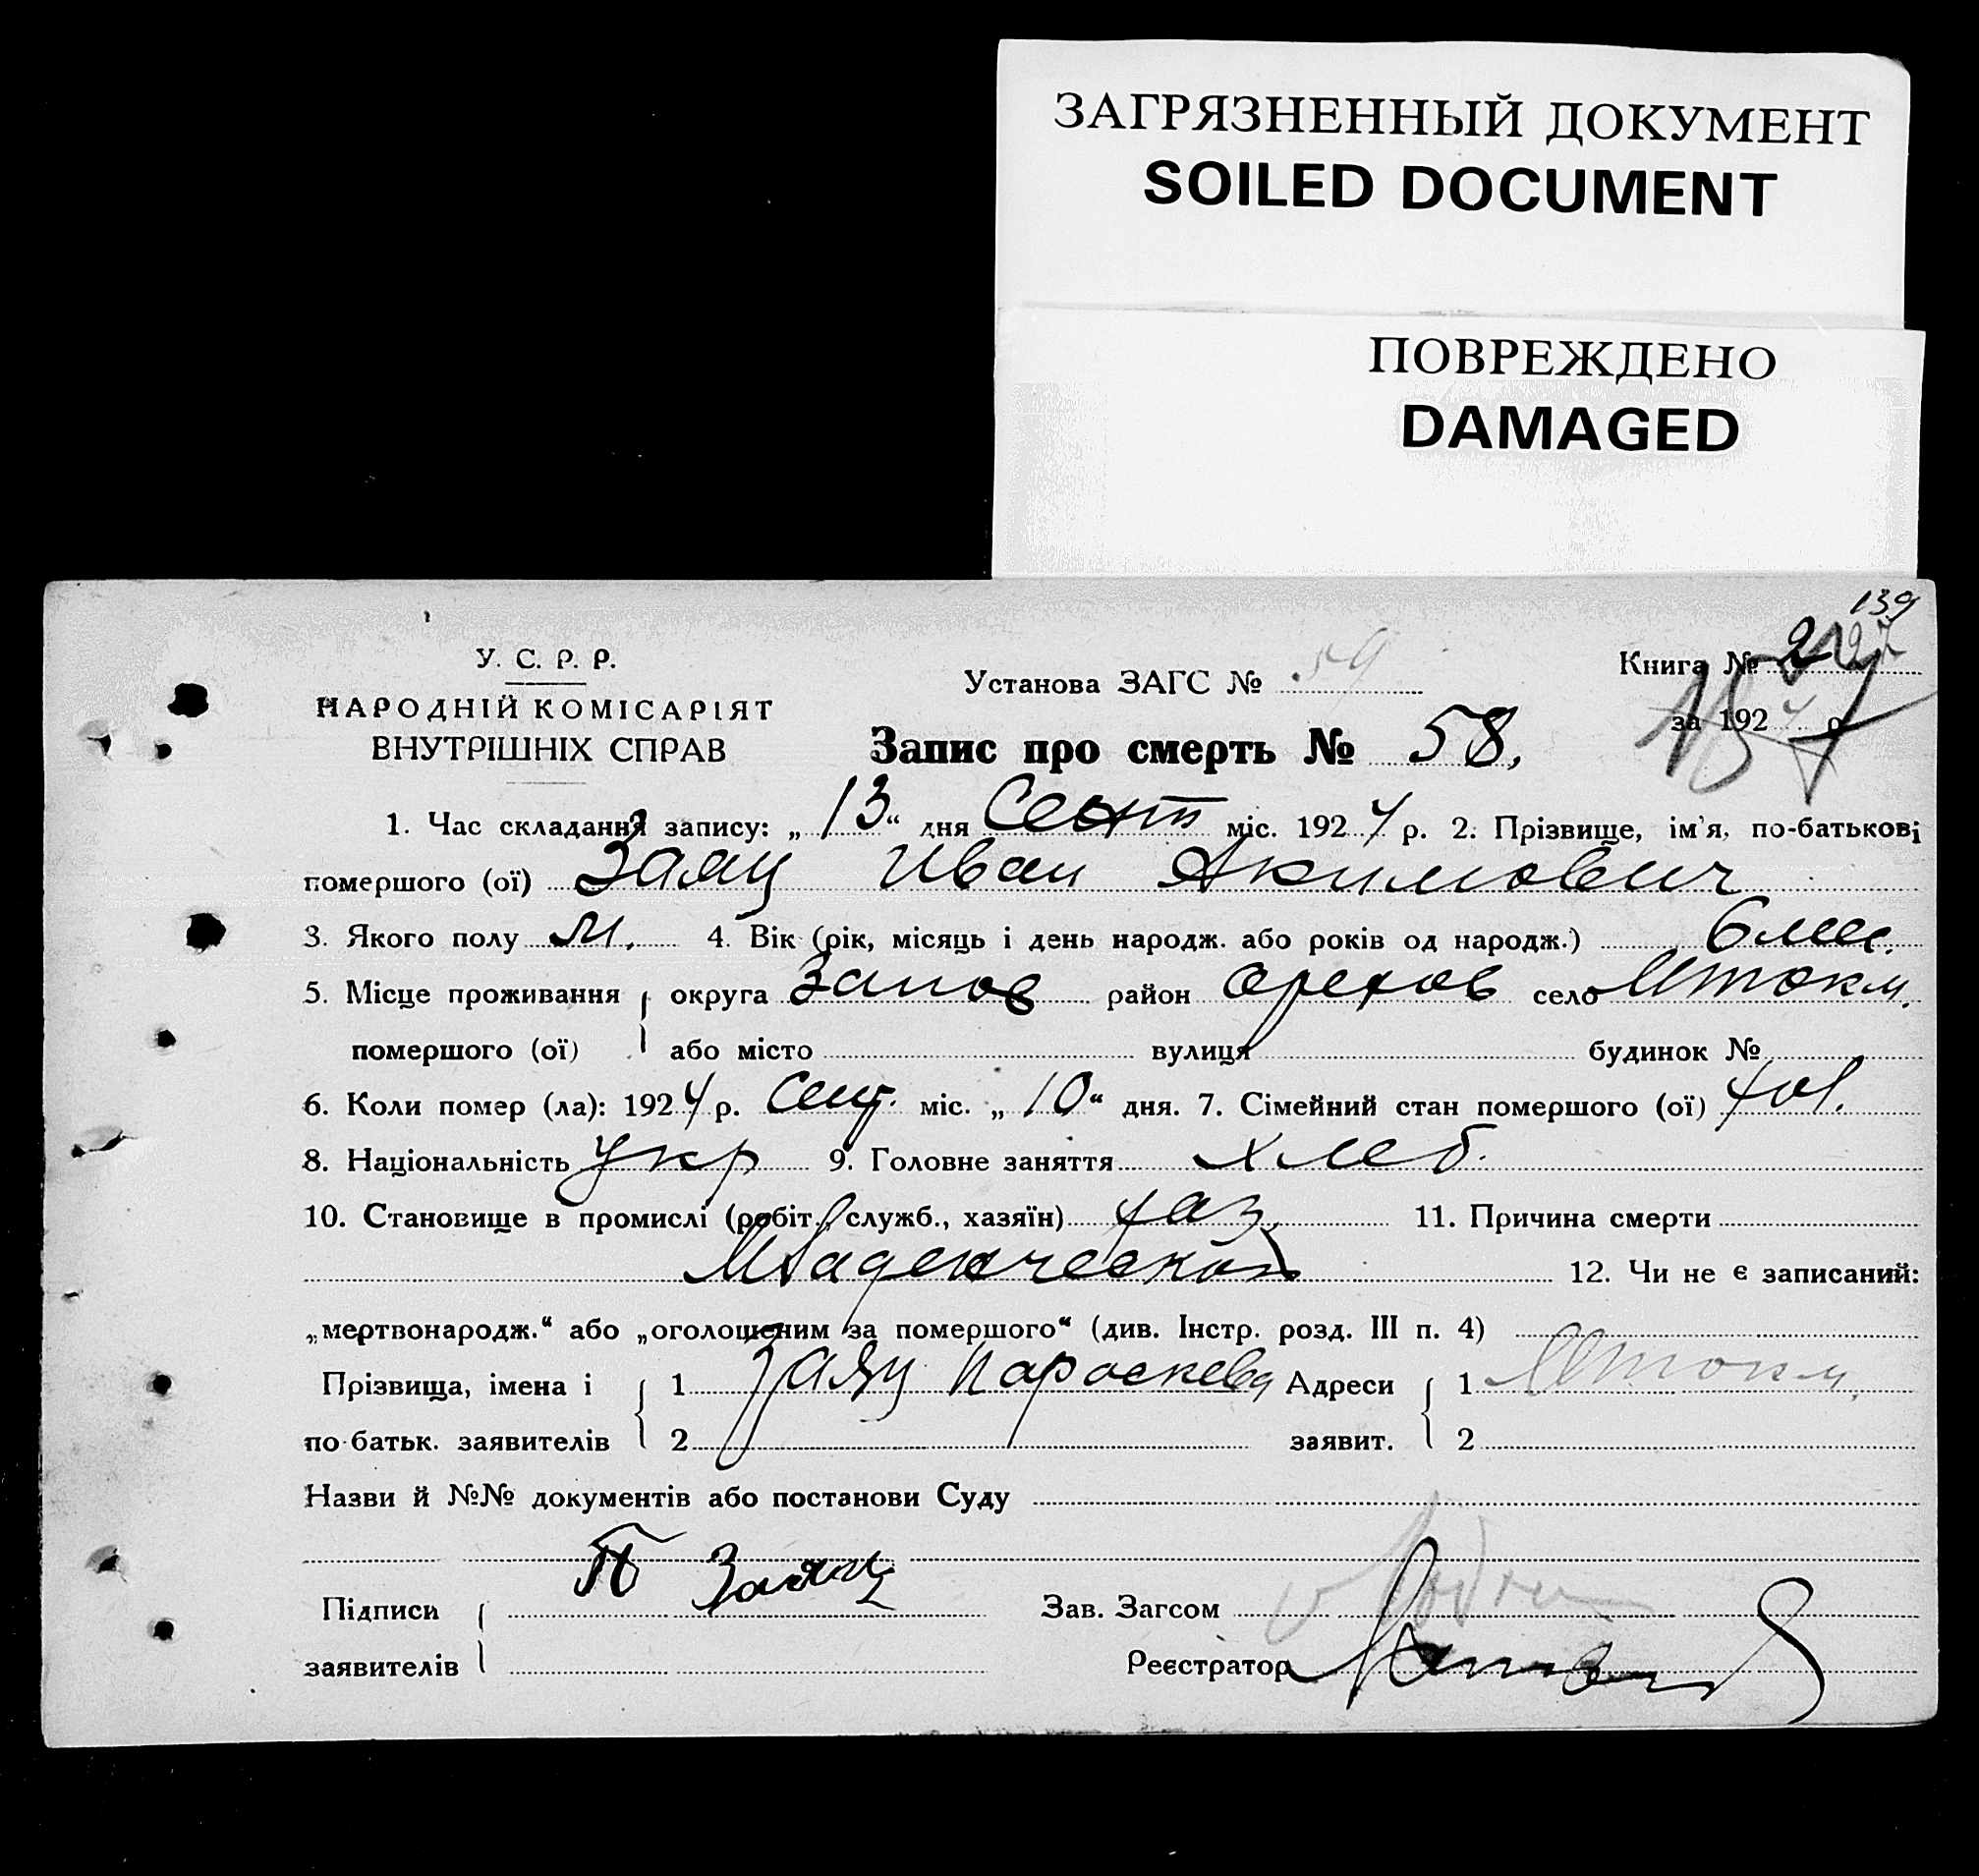 ЗАГРЯЗНЕННЫЙ ДОКУМЕНТ
SOILED DOCUMENT
ПОВРЕЖДЕНО
DAMAGED
139
У. С. Р. Р.
НАРОДНІЙ КОМІСАРІЯТ
ВНУТРІШНІХ СПРАВ
Установа ЗАГС № 59
Книга № 2
за 1924 р
Запис про смерть № 58.
1. Час складання запису: „13“ дня Сент міс. 1924 р. 2. Прізвище, ім'я, по-батькові
помершого (ої) Заяц Иван Акимович
3. Якого полу М. 4. Вік (рік, місяць і день народж. або років од народж.) 6 мес.
5. Місце проживання округа Запор район Орехов село М токм.
помершого (ої) або місто вулиця будинок №
6. Коли помер (ла): 1924 р. Сент. міс. „10“ дня. 7. Сімейний стан помершого (ої) хол.
8. Національність Укр 9. Головне заняття хлеб.
10. Становище в промислі (робіт., служб., хазяїн) хаз. 11. Причина смерти
Младенческой 12. Чи не є записаний:
„мертвонародж.“ або „оголошеним за помершого“ (див. Інстр. розд. III п. 4)
Прізвища, імена і 1 Заяц Параскева Адреси 1 М токм.
по батьк. заявителів 2 заявит. 2
Назви й №№ документів або постанови Суду
Підписи П Заяц Зав. Загсом
заявителів Реєстратор